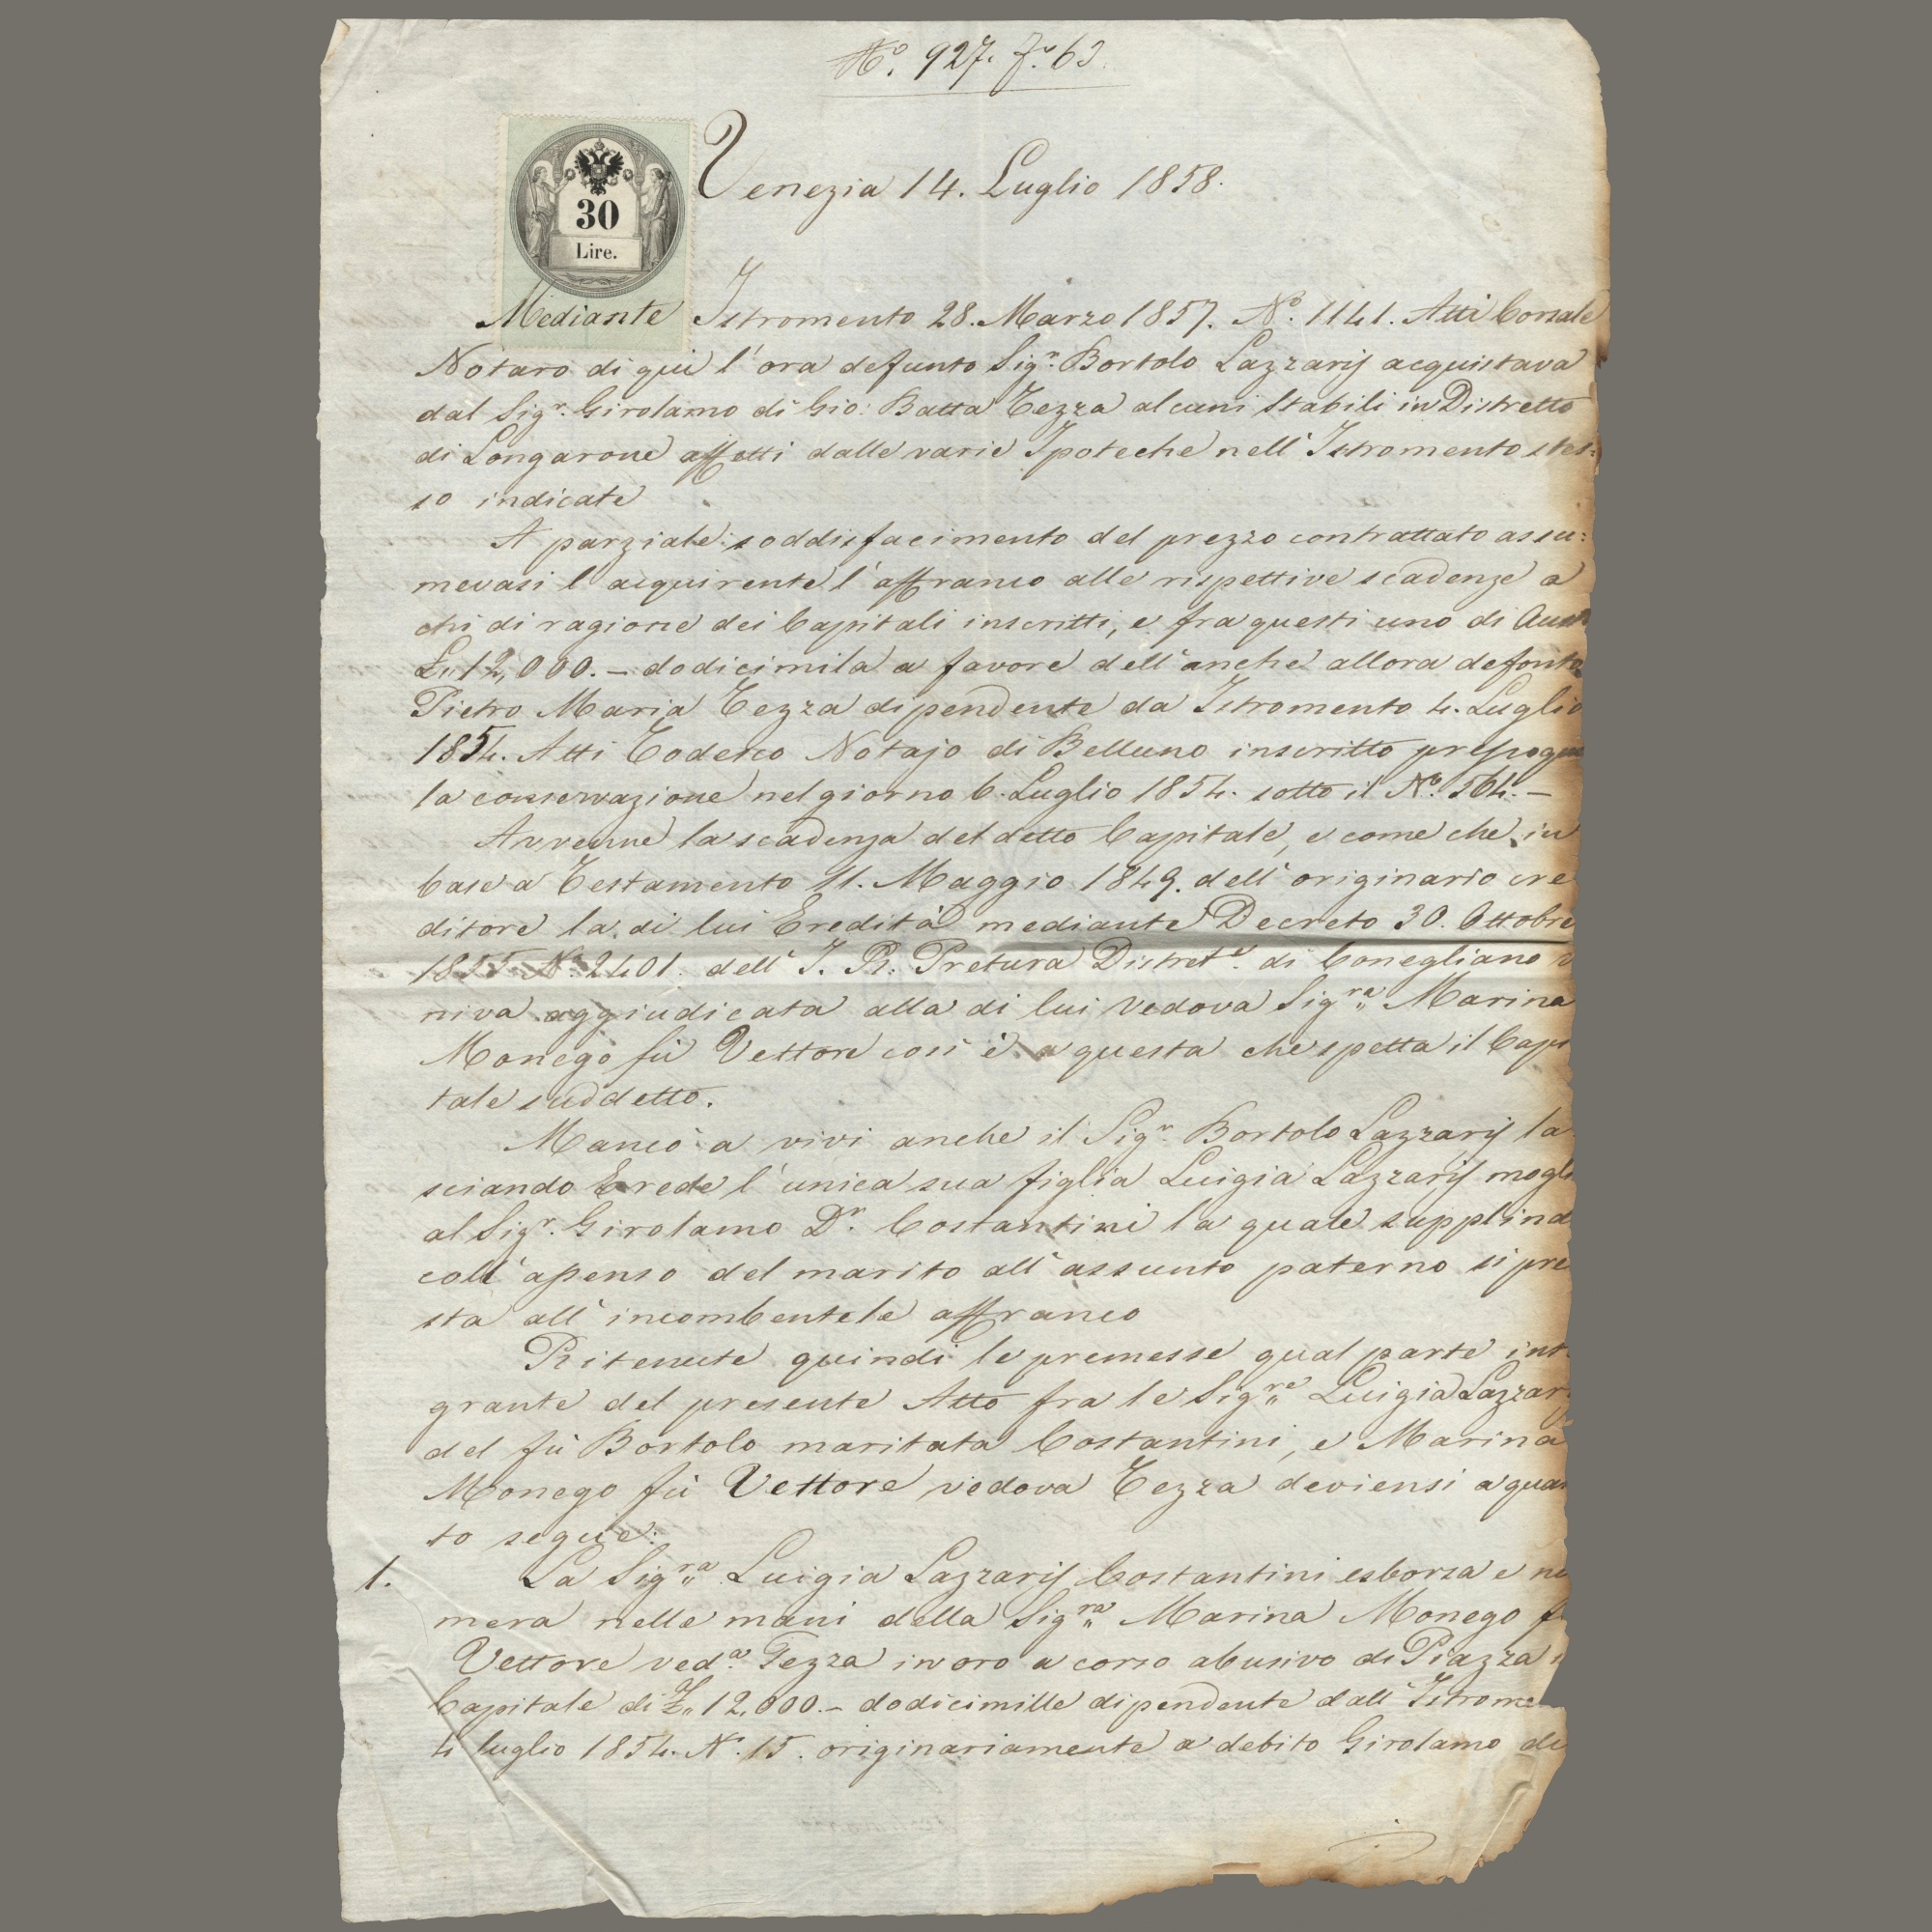 No. 927. 63
30
Lire.
Venezia 14. Luglio 1858.
Mediante Istromento 28. Marzo 1857. No. 1141. Atti Consale
Notaro di qui l'ora defunto Sigr. Bortolo Lazzaris acquistava
dal Sigr. Girolamo di Gio: Batta Tezza alcuni Stabili in Distretto
di Longarone affetti dalle varie Ipoteche nell'Istromento stes=
so indicate
A parziale soddisfacimento del prezzo contrattato assu=
mevasi l'acquirente l'affranco alle rispettive scadenze a
chi di ragione dei Capitali inscritti, e fra questi uno di Aust
£" 12,000.- dodicimila a favore dell'anche allora defonto
Pietro Maria Tezza dipendente da Istromento 4. Luglio
1854. Atti Todesco Notajo di Belluno inscritto presso que
la conservazione nel giorno 6. Luglio 1854. sotto il No. 564.-
Avvenne la scadenza del detto Capitale, e come che in
base a Testamento 11. Maggio 1849. dell'originario cre
ditore la di lui Eredità mediante Decreto 30. Ottobre
1855 No. 2401. dell'I. R. Pretura Distrete. di Conegliano v
niva aggiudicata alla di lui Vedova Sigra Marina
Monego fù Vettore così è a questa che spetta il Capi
tale suddetto.
Mancò a vivi anche il Sigr. Bortolo Lazzaris la
sciando Erede l'unica sua figlia Luigia Lazzaris mogli
al Sigr. Girolamo Dr. Costantini la quale supplind
coll'assenso del marito all'assunto paterno si pre
sta all'incombentele affranco
Ritenute quindi le premesse qual parte inte
grante del presente Atto fra le Sigre Luigia Lazzari
del fù Bortolo maritata Costantini, e Marina
Monego fù Vettore vedova Tezza deviensi a quan
to segue:
1. La Sigra Luigia Lazzaris Costantini esborsa e nu
mera nelle mani della Sigra Marina Monego f
Vettore veda. Tezza in oro a corso abusivo di Piazza i
Capitale di £" 12,000.- dodicimille dipendente dall'Istrome
4 luglio 1854. No. 15. originariamente a debito Girolamo di